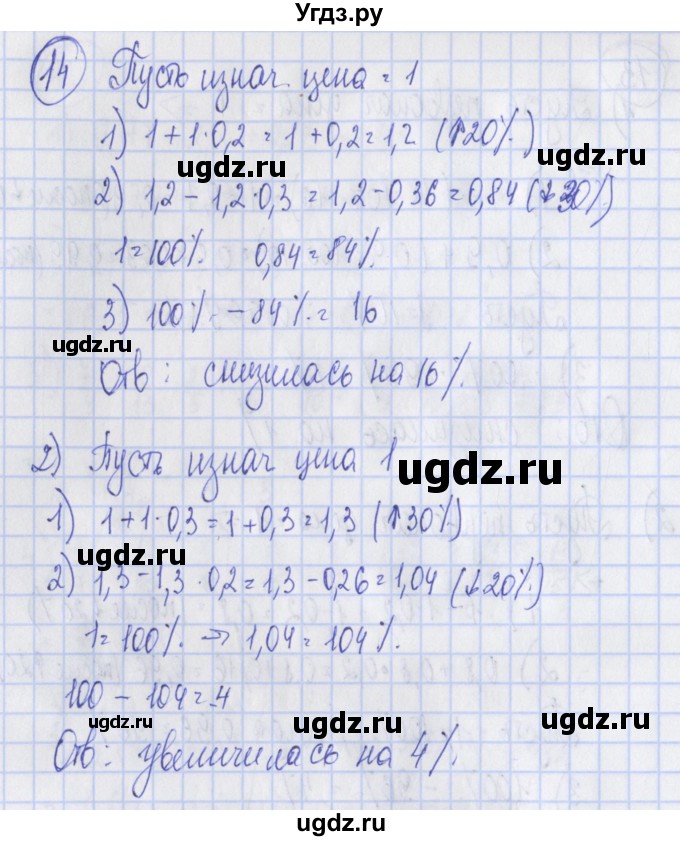 Угдз.ру
14 Пусть изнач. цена = 1
1) 1 + 1·0,2 = 1 + 0,2 = 1,2 (↑20%)
ugdz.ru ugdz.ru
2) 1,2 - 1,2·0,3 = 1,2 - 0,36 = 0,84 (↓30%)
1 = 100% 0,84 = 84%
ugdz.ru
3) 100% - 84% = 16
ugdz.ru
Отв: снизилась на 16%.
2) Пусть изнач цена 1
ugdz.ru
1) 1 + 1·0,3 = 1 + 0,3 = 1,3 (↑30%)
ugdz.ru
2) 1,3 - 1,3·0,2 = 1,3 - 0,26 = 1,04 (↓20%)
1 = 100% → 1,04 = 104%.
100 - 104 = -4
ugdz.ru ugdz.ru
Отв: увеличилась на 4%.
ugdz.ru